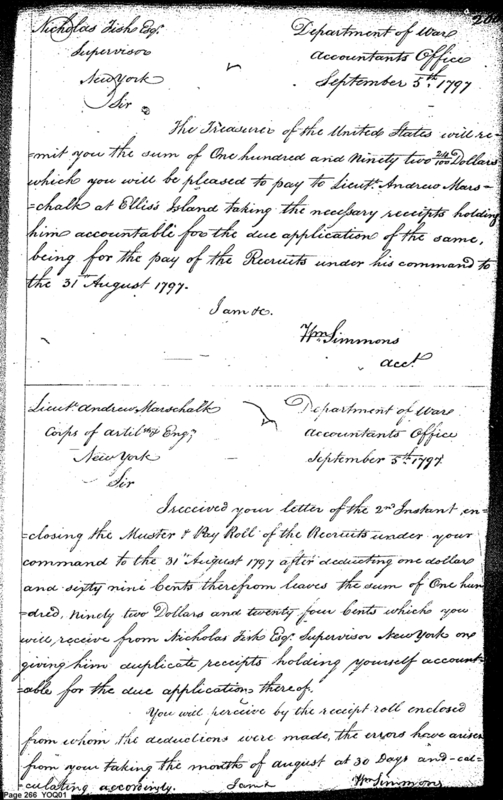 Nicholas Fish Esqr.
Supervisor
New York
Sir
Department of War
Accountants Office
September 5th. 1797
The Treasurer of the United States will re-
mit you the sum of One hundred and Ninety two 24/100 Dollars
which you will be pleased to pay to Lieut. Andrew Mars-
=chalk at Ellis's Island taking the necessary receipts holding
him accountable for the due application of the same,
being for the pay of the Recruits under his command to
the 31st August 1797.
I am &c.
Wm. Simmons
Acct.
Lieut. Andrew Marschalk
Corps of Artily & Engr.
New York
Sir
Department of War
Accountants Office
September 5th. 1797
I received your letter of the 2nd Instant en=
=closing the Muster & Pay Roll of the Recruits under your
command to the 31st August 1797 after deducting one dollar
and sixty nine Cents therefrom leaves the sum of One hun
=dred, Ninety two Dollars and twenty four Cents which you
will, receive from Nicholas Fish Esqr. Supervisor New York on
giving him duplicate receipts holding yourself account=
=able for the due application thereof.
You will perceive by the receipt roll enclosed
from whom the deductions were made, the errors have arisen
from your taking the month of August at 30 Days and cal=
=culating accordingly. I am &
Wm Simmons
Page 266 YOQ01